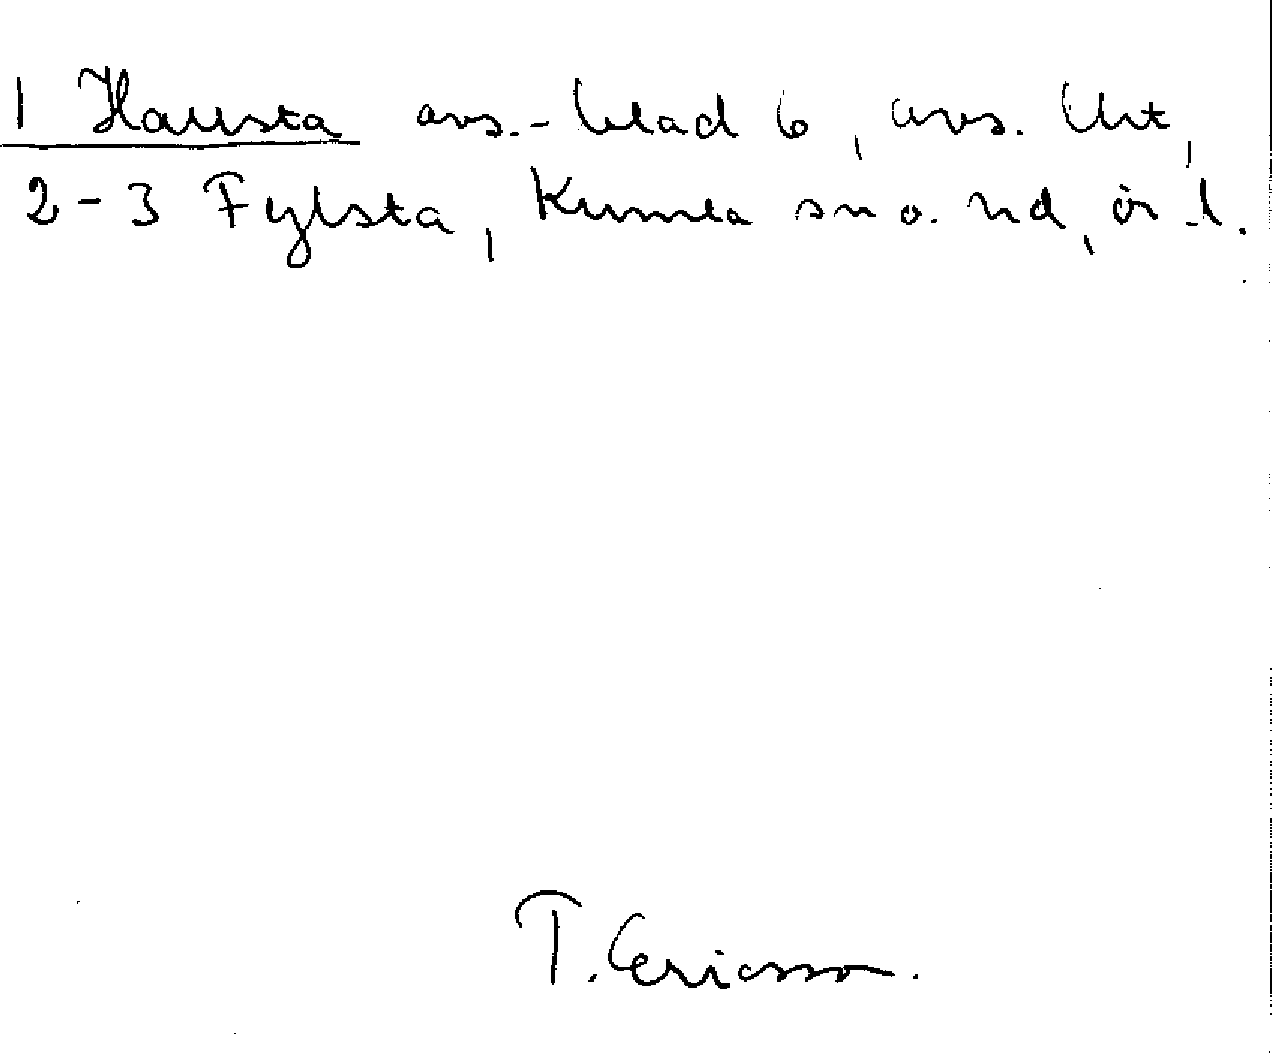 1 Hallsta avs.-blad 6, avs. Ukt,
2-3 Fylsta, Kumla sn o. hd, ör. l.
T. Ericsson.